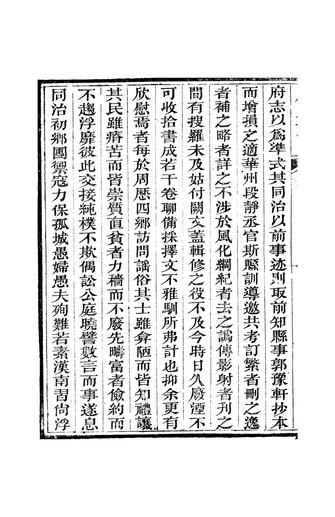 府志以為準式其同治以前事迹則取前知縣事郭豫軒抄本
而增損之適華州段靜丞官斯縣訓導邀共考訂繁者刪之逸
者補之略者詳之不涉於風化綱紀者去之譌傳影射者刊之
間有搜羅未及姑付闕文蓋輯修之役不及今時日久廢湮不
可收拾書成若干卷聊備採擇文不雅馴所弗計也抑余更有
欣慰焉者每於周歷四鄉訪問謠俗其士雖弇陋而皆知禮讓
其民雖瘠苦而皆崇質直貧者力穡而不廢先疇富者儉約而
不趨浮靡彼此交接純樸不欺偶訟公庭曉譬數言而事遂息
同治初鄉團禦寇力保孤城愚婦愚夫殉難若素漢南習尚浮